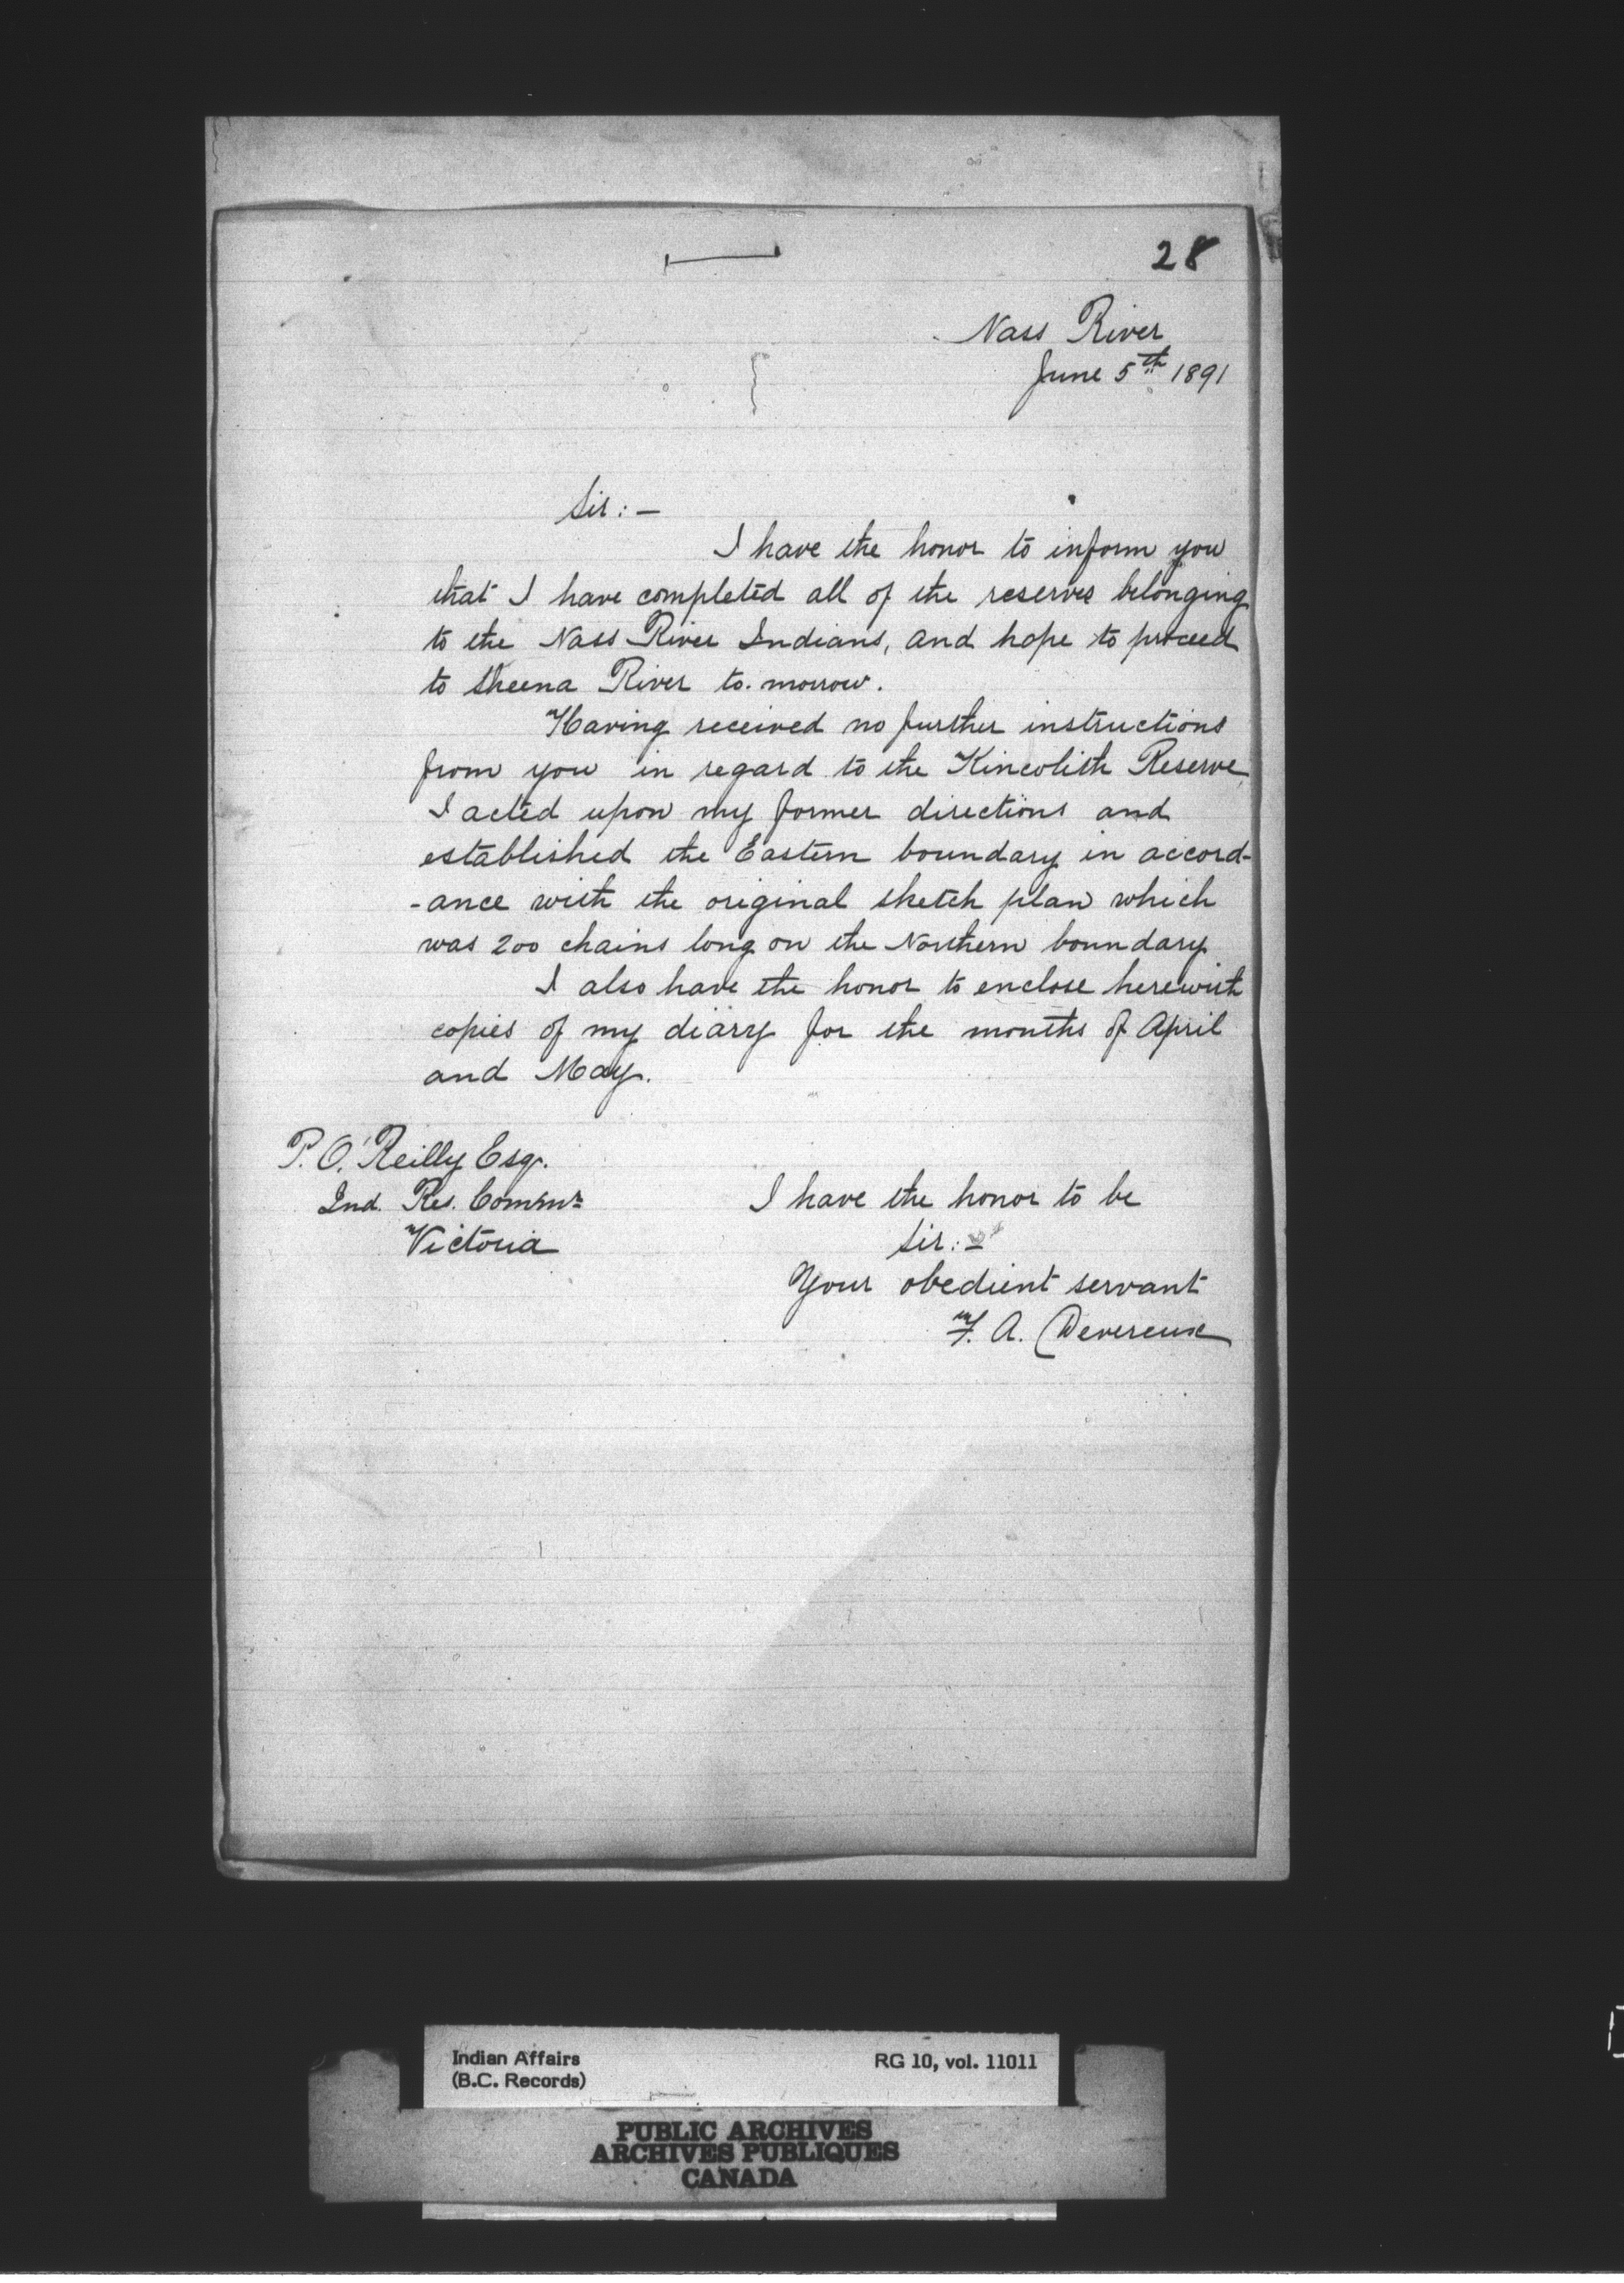 28
Nass River
June 5th 1891
Sir:—
I have the honor to inform you
that I have completed all of the reserves belonging
to the Nass River Indians, and hope to proceed
to Skeena River to-morrow.
Having received no further instructions
from you in regard to the Kincolith Reserve
I acted upon my former directions and
established the Eastern boundary in accord-
-ance with the original sketch plan which
was 200 chains long on the Northern boundary
I also have the honor to enclose herewith
copies of my diary for the months of April
and May.
P. O'Reilly Esq.
Ind. Res. Commr
Victoria
I have the honor to be
Sir:—
Your obedient servant
F. A. Devereux
Indian Affairs
(B.C. Records)
RG 10, vol. 11011
PUBLIC ARCHIVES
ARCHIVES PUBLIQUES
CANADA